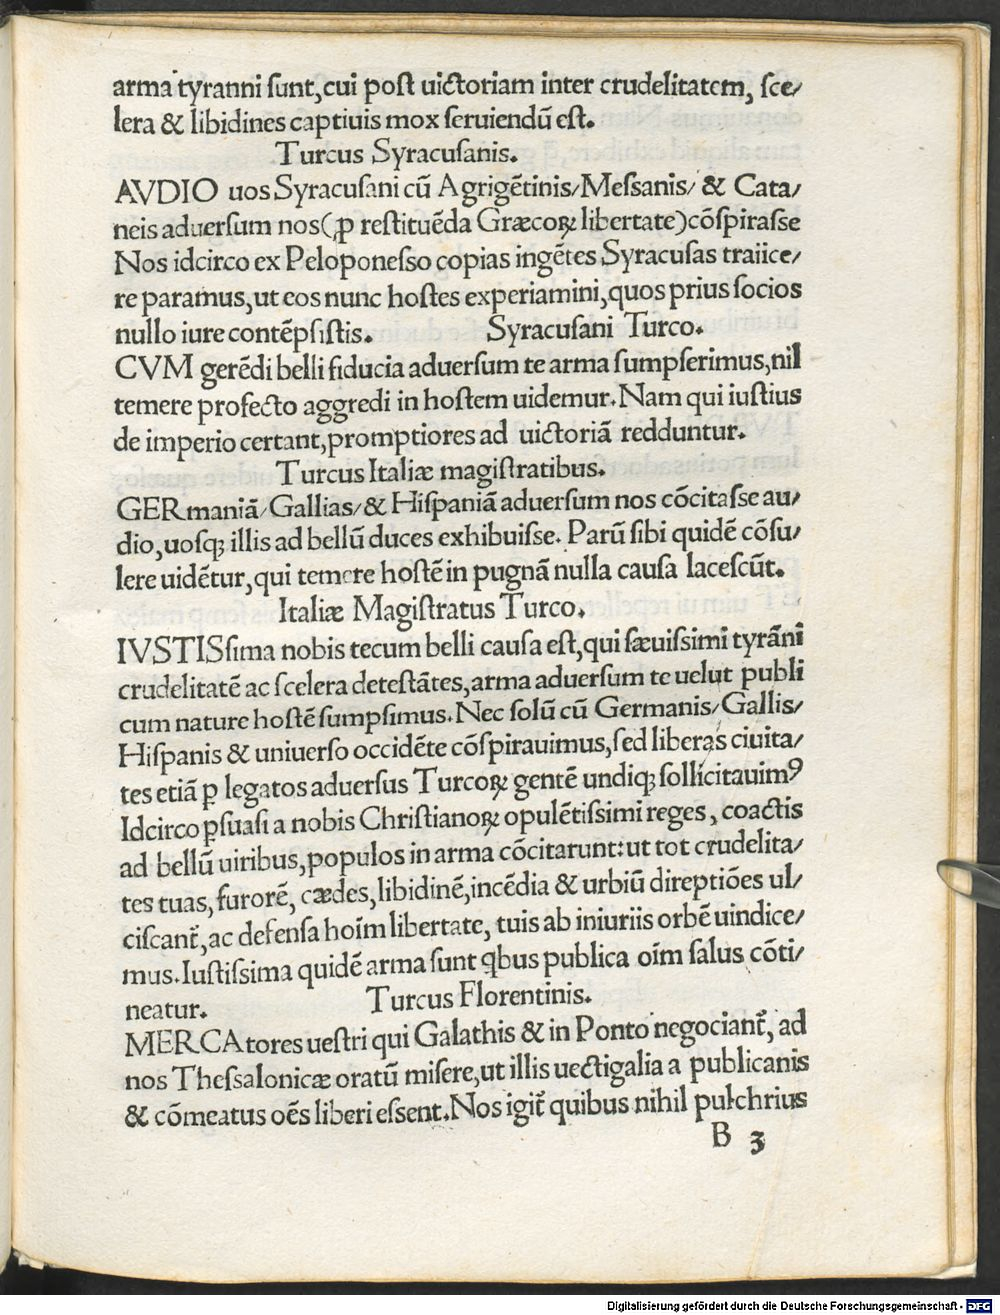 arma tyranni ſunt,cui poſt uictoriam inter crudelitatem, ſce/
lera & libidines captiuis mox ſeruiendũ eſt.
Turcus Syracuſanis.
AVDIO uos Syracuſani cũ Agrigẽtinis/Meſsanis/ & Cata/
neis aduerſum nos(ꝓ reſtituẽda Græcoꝝ libertate)cõſpiraſse
Nos idcirco ex Peloponeſso copias ingẽtes Syracuſas traiice/
re paramus,ut eos nunc hoſtes experiamini,quos prius ſocios
nullo iure contẽpſiſtis. Syracuſani Turco.
CVM gerẽdi belli fiducia aduerſum te arma ſumpſerimus,nil
temere profecto aggredi in hoſtem uidemur.Nam qui iuſtius
de imperio certant,promptiores ad uictoriã redduntur.
Turcus Italiæ magiſtratibus.
GERmaniã/Gallias/& Hiſpaniã aduerſum nos cõcitaſse au/
dio,uoſqꝫ illis ad bellũ duces exhibuiſse. Parũ ſibi quidẽ cõſu/
lere uidẽtur,qui temere hoſtẽ in pugnã nulla cauſa laceſcũt.
Italiæ Magiſtratus Turco.
IVSTISſima nobis tecum belli cauſa eſt,qui ſæuiſſimi tyrãni
crudelitatẽ ac ſcelera deteſtãtes,arma aduerſum te uelut publi
cum nature hoſtẽ ſumpſimus.Nec ſolũ cũ Germanis/Gallis/
Hiſpanis & uniuerſo occidẽte cõſpirauimus,ſed liberas ciuita/
tes etiã ꝑ legatos aduerſus Turcoꝝ gentẽ undiqꝫ ſollicitauimꝰ
Idcirco ꝑſuaſi a nobis Chriſtianoꝝ opulẽtiſſimi reges, coactis
ad bellũ uiribus,populos in arma cõcitarunt:ut tot crudelita/
tes tuas, furorẽ, cædes,libidinẽ,incẽdia & urbiũ direptiões ul/
ciſcant᷑,ac defenſa hoĩm libertate, tuis ab iniuriis orbẽ uindice/
mus.Iuſtiſſima quidẽ arma ſunt qbus publica oĩm ſalus cõti/
neatur. Turcus Florentinis.
MERCAtores ueſtri qui Galathis & in Ponto negociant᷑, ad
nos Theſſalonicæ oratũ miſere,ut illis uectigalia a publicanis
& cõmeatus oẽs liberi eſsent.Nos igit᷑ quibus nihil pulchrius
B 3
Digitalisierung gefördert durch die Deutsche Forschungsgemeinschaft - DFG